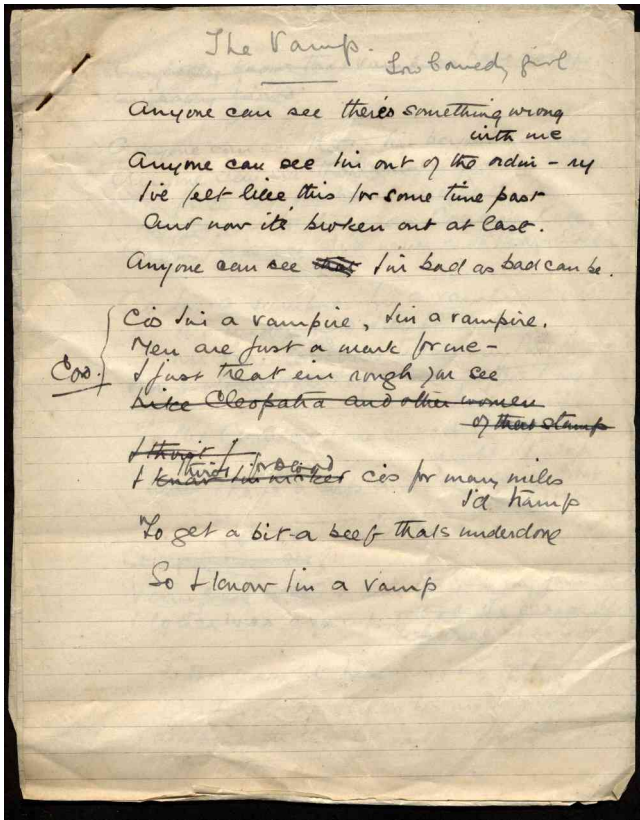 The Vamp.
Low Comedy girl
Anyone can see there's something wrong
with me
Anyone can see I'm out of the ordin - ry
I've felt like this for some time past
And now it's broken out at last.
Anyone can see that I'm bad as bad can be.
Cos I'm a vampire, I'm a vampire.
Men are just a mark for me -
Cos.
I just treat em rough you see
Like Cleopatra and other women
of that stamp
I thirst
thirst for blood
I know I'm cos for many miles
I'd tramp
To get a bit-a beef thats underdone
So I know I'm a vamp